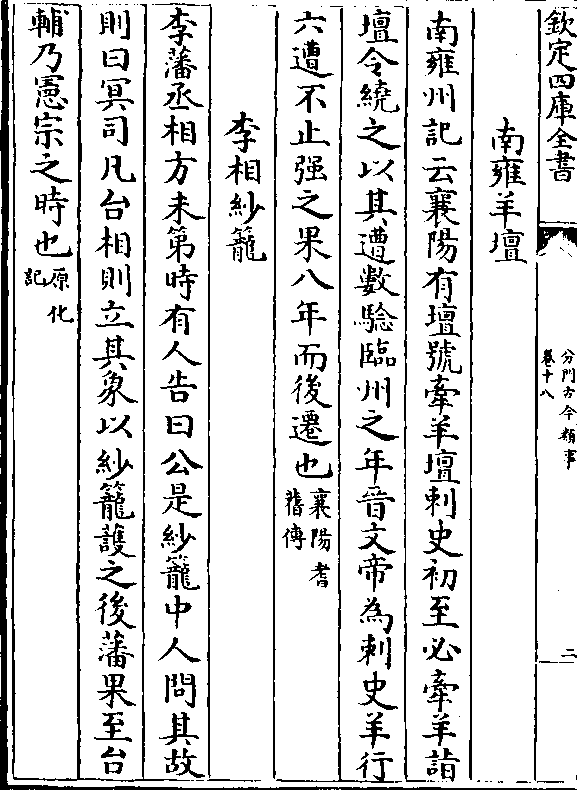 欽定四庫全書
分門古今類事
卷十八
二
南雍羊壇
南雍州記云襄陽有壇號牽羊壇刺史初至必牽羊詣
壇令繞之以其遭數驗臨州之年晉文帝為刺史羊行
六遭不止强之果八年而後遷也襄陽耆
舊傳
李相紗籠
李藩丞相方未第時有人告曰公是紗籠中人問其故
則曰冥司凡台相則立其象以紗籠護之後藩果至台
輔乃憲宗之時也原化
記